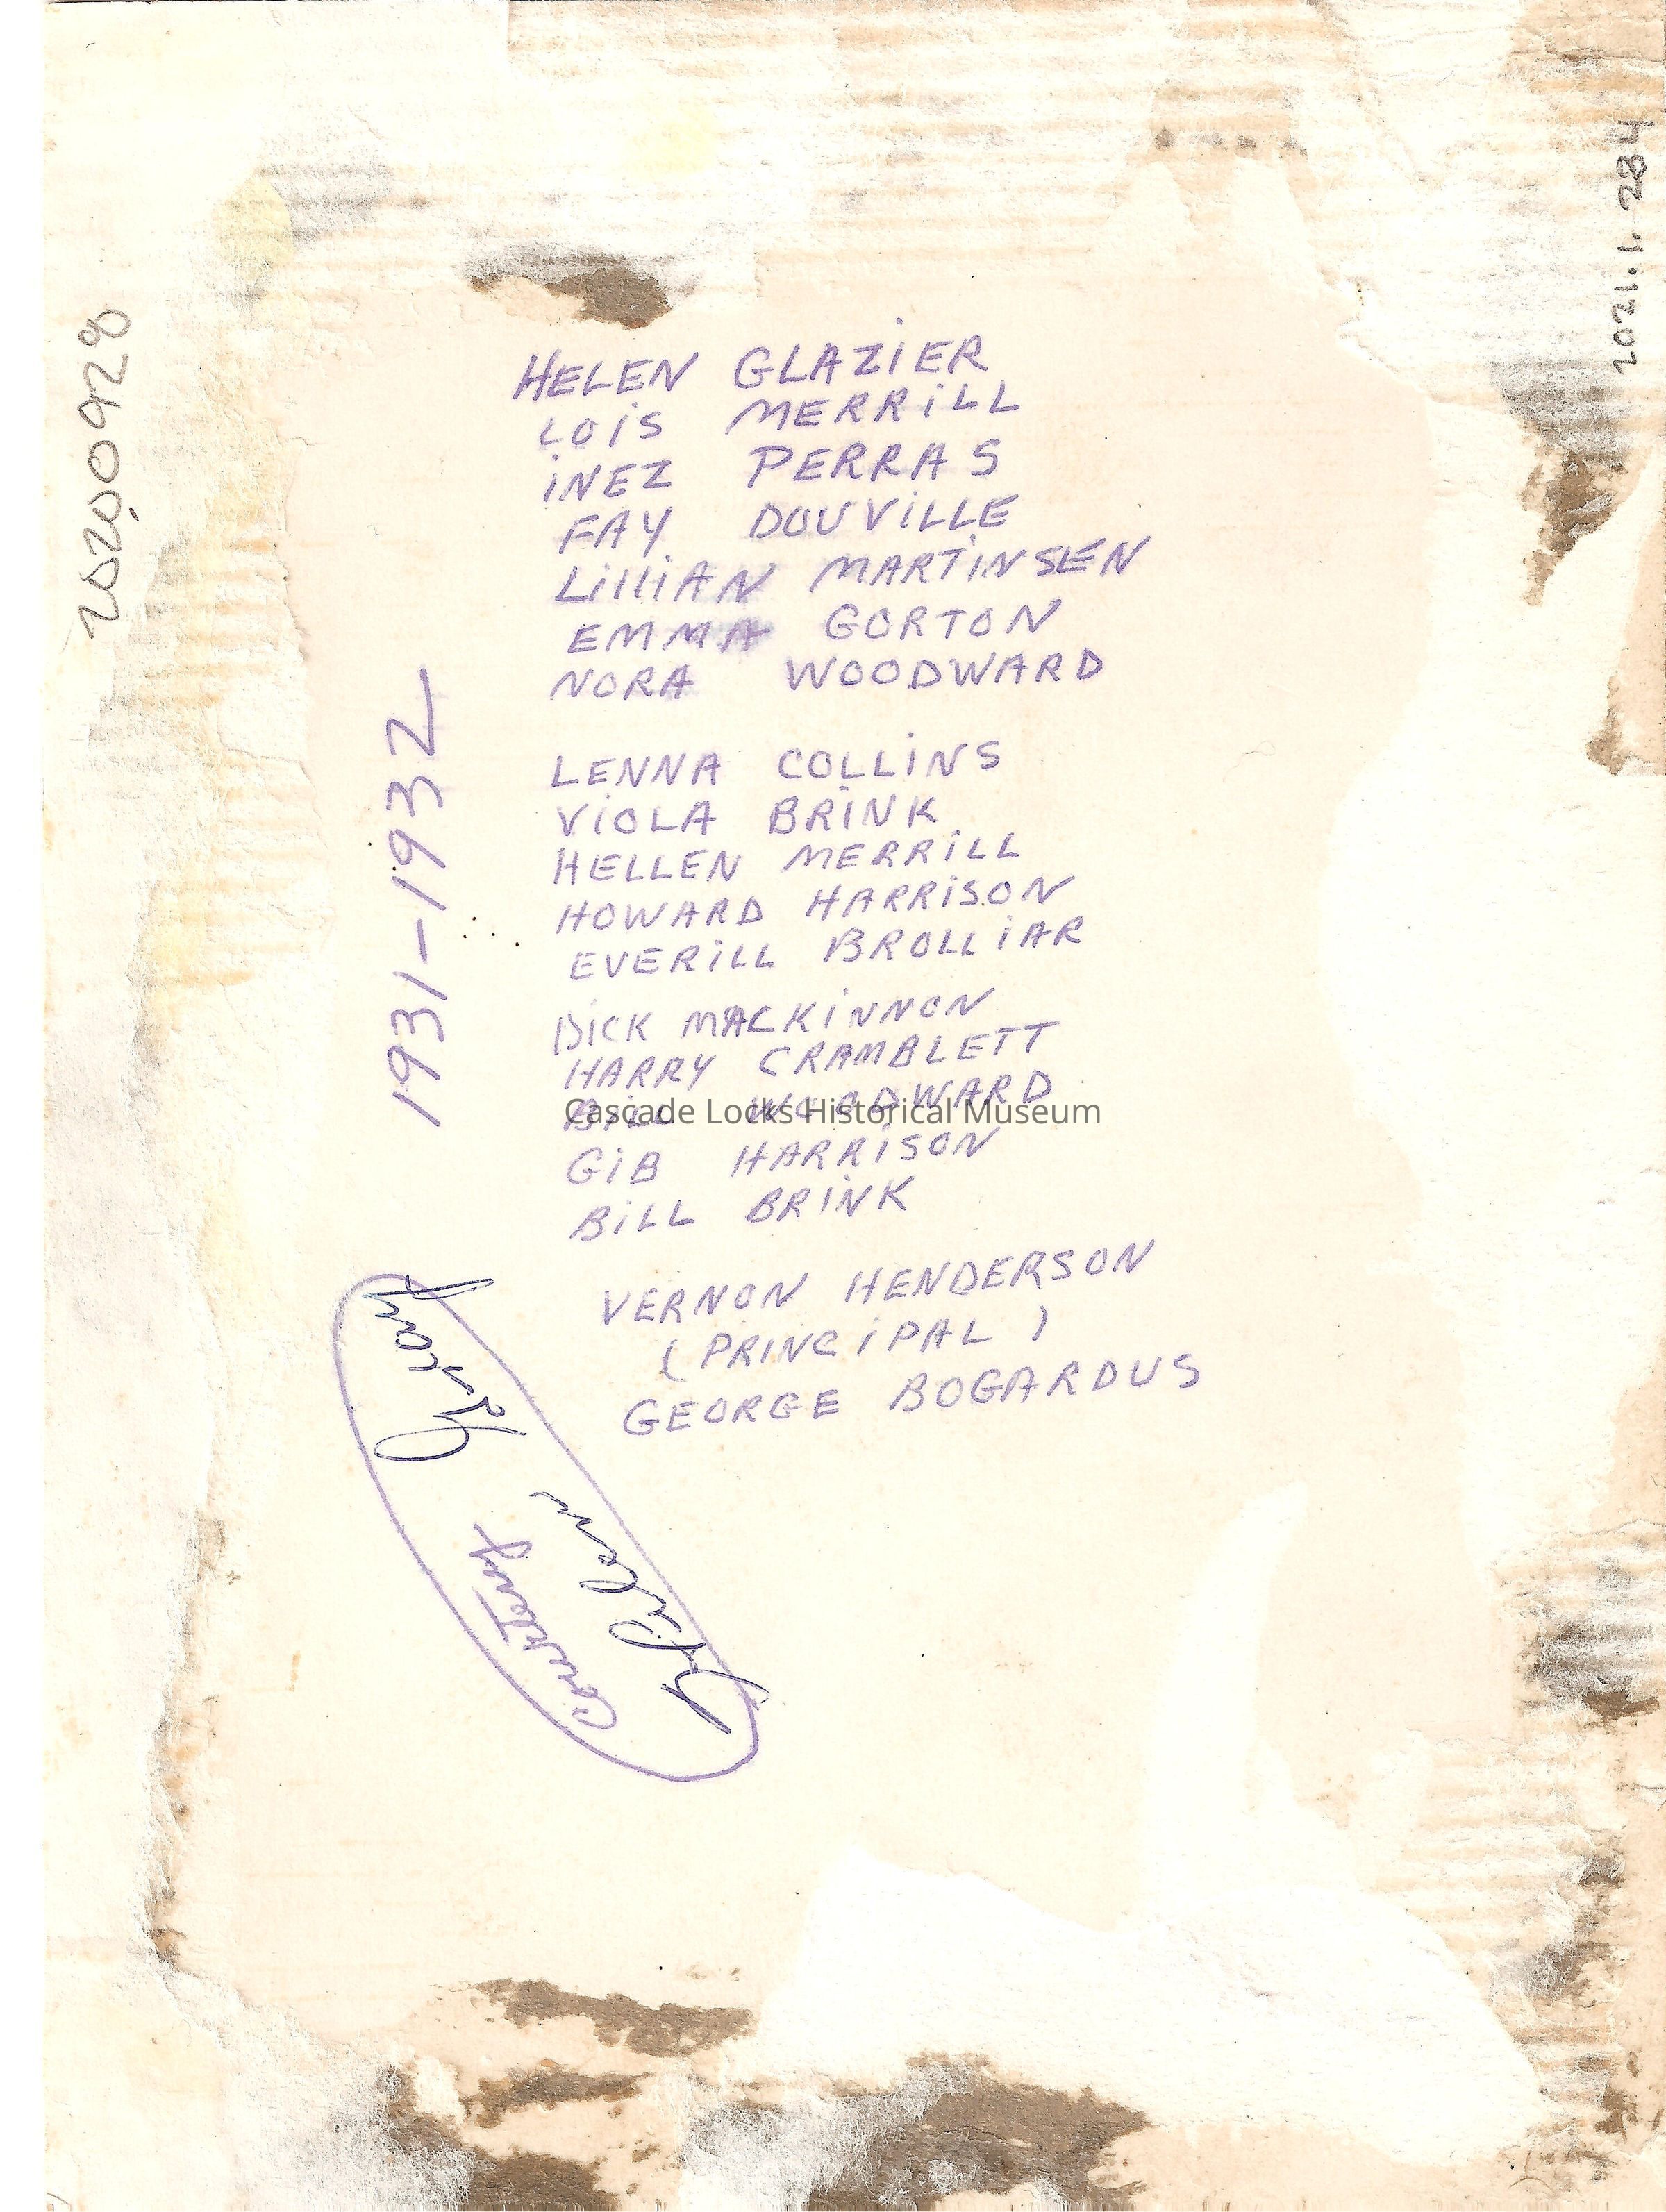 HELEN GLAZIER
LOIS MERRILL
INEZ PERRAS
FAY DOUVILLE
LILLIAN MARTINSEN
EMMA GORTON
NORA WOODWARD
LENNA COLLINS
VIOLA BRINK
HELLEN MERRILL
HOWARD HARRISON
EVERILL BROLLIAR
DICK MACKINNON
HARRY CRAMBLETT
BILL WOODWARD
Cascade Locks Historical Museum
GIB HARRISON
BILL BRINK
VERNON HENDERSON
(PRINCIPAL)
GEORGE BOGARDUS
1931-1932
20200928
2021.1.284
Courtesy